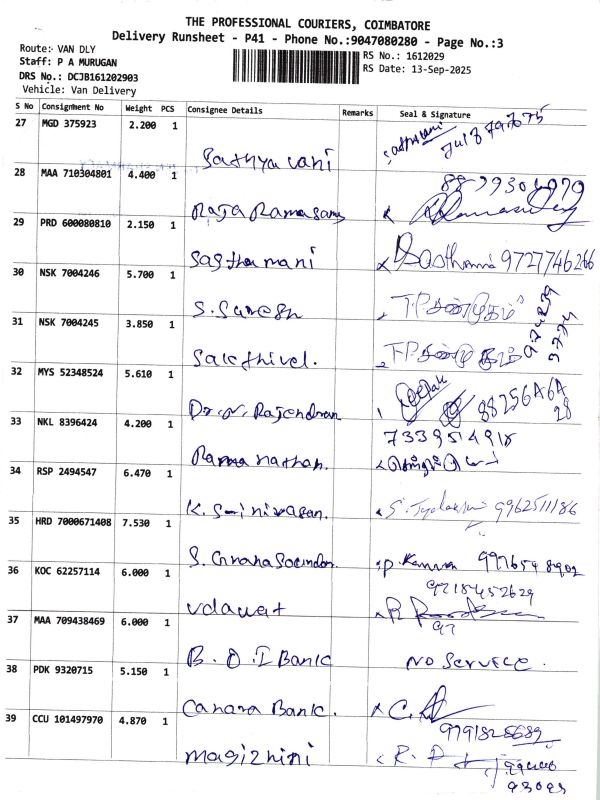 THE PROFESSIONAL COURIERS, COIMBATORE
Delivery Runsheet - P41 - Phone No.:9047080280 - Page No.:3
Route:- VAN DLY
Staff: P A MURUGAN
DRS No.: DCJB161202903
Vehicle: Van Delivery
RS No.: 1612029
RS Date: 13-Sep-2025
S No Consignment No Weight PCS Consignee Details Remarks Seal & Signature
27 MGD 375923 2.200 1
Sathya vani
28 MAA 710304801 4.400 1
Raja Ramasamy
29 PRD 600080810 2.150 1
Sasthamani 9727746266
30 NSK 7004246 5.700 1
S. Suresh
31 NSK 7004245 3.850 1
Sakthivel.
32 MYS 52348524 5.610 1
Dr. N. Rajendran
33 NKL 8396424 4.200 1
7339514918
Ramanathan.
34 RSP 2494547 6.470 1
K. Srinivasan. 9962511186
35 HRD 7000671408 7.530 1
S. Gnanagovindan P. Kannan
36 KOC 62257114 6.000 1
9218452629
Udawat
37 MAA 709438469 6.000 1
97
B.O.I Bank NO Service.
38 PDK 9320715 5.150 1
Canara Bank.
39 CCU 101497970 4.870 1
9791828689
Magizhini